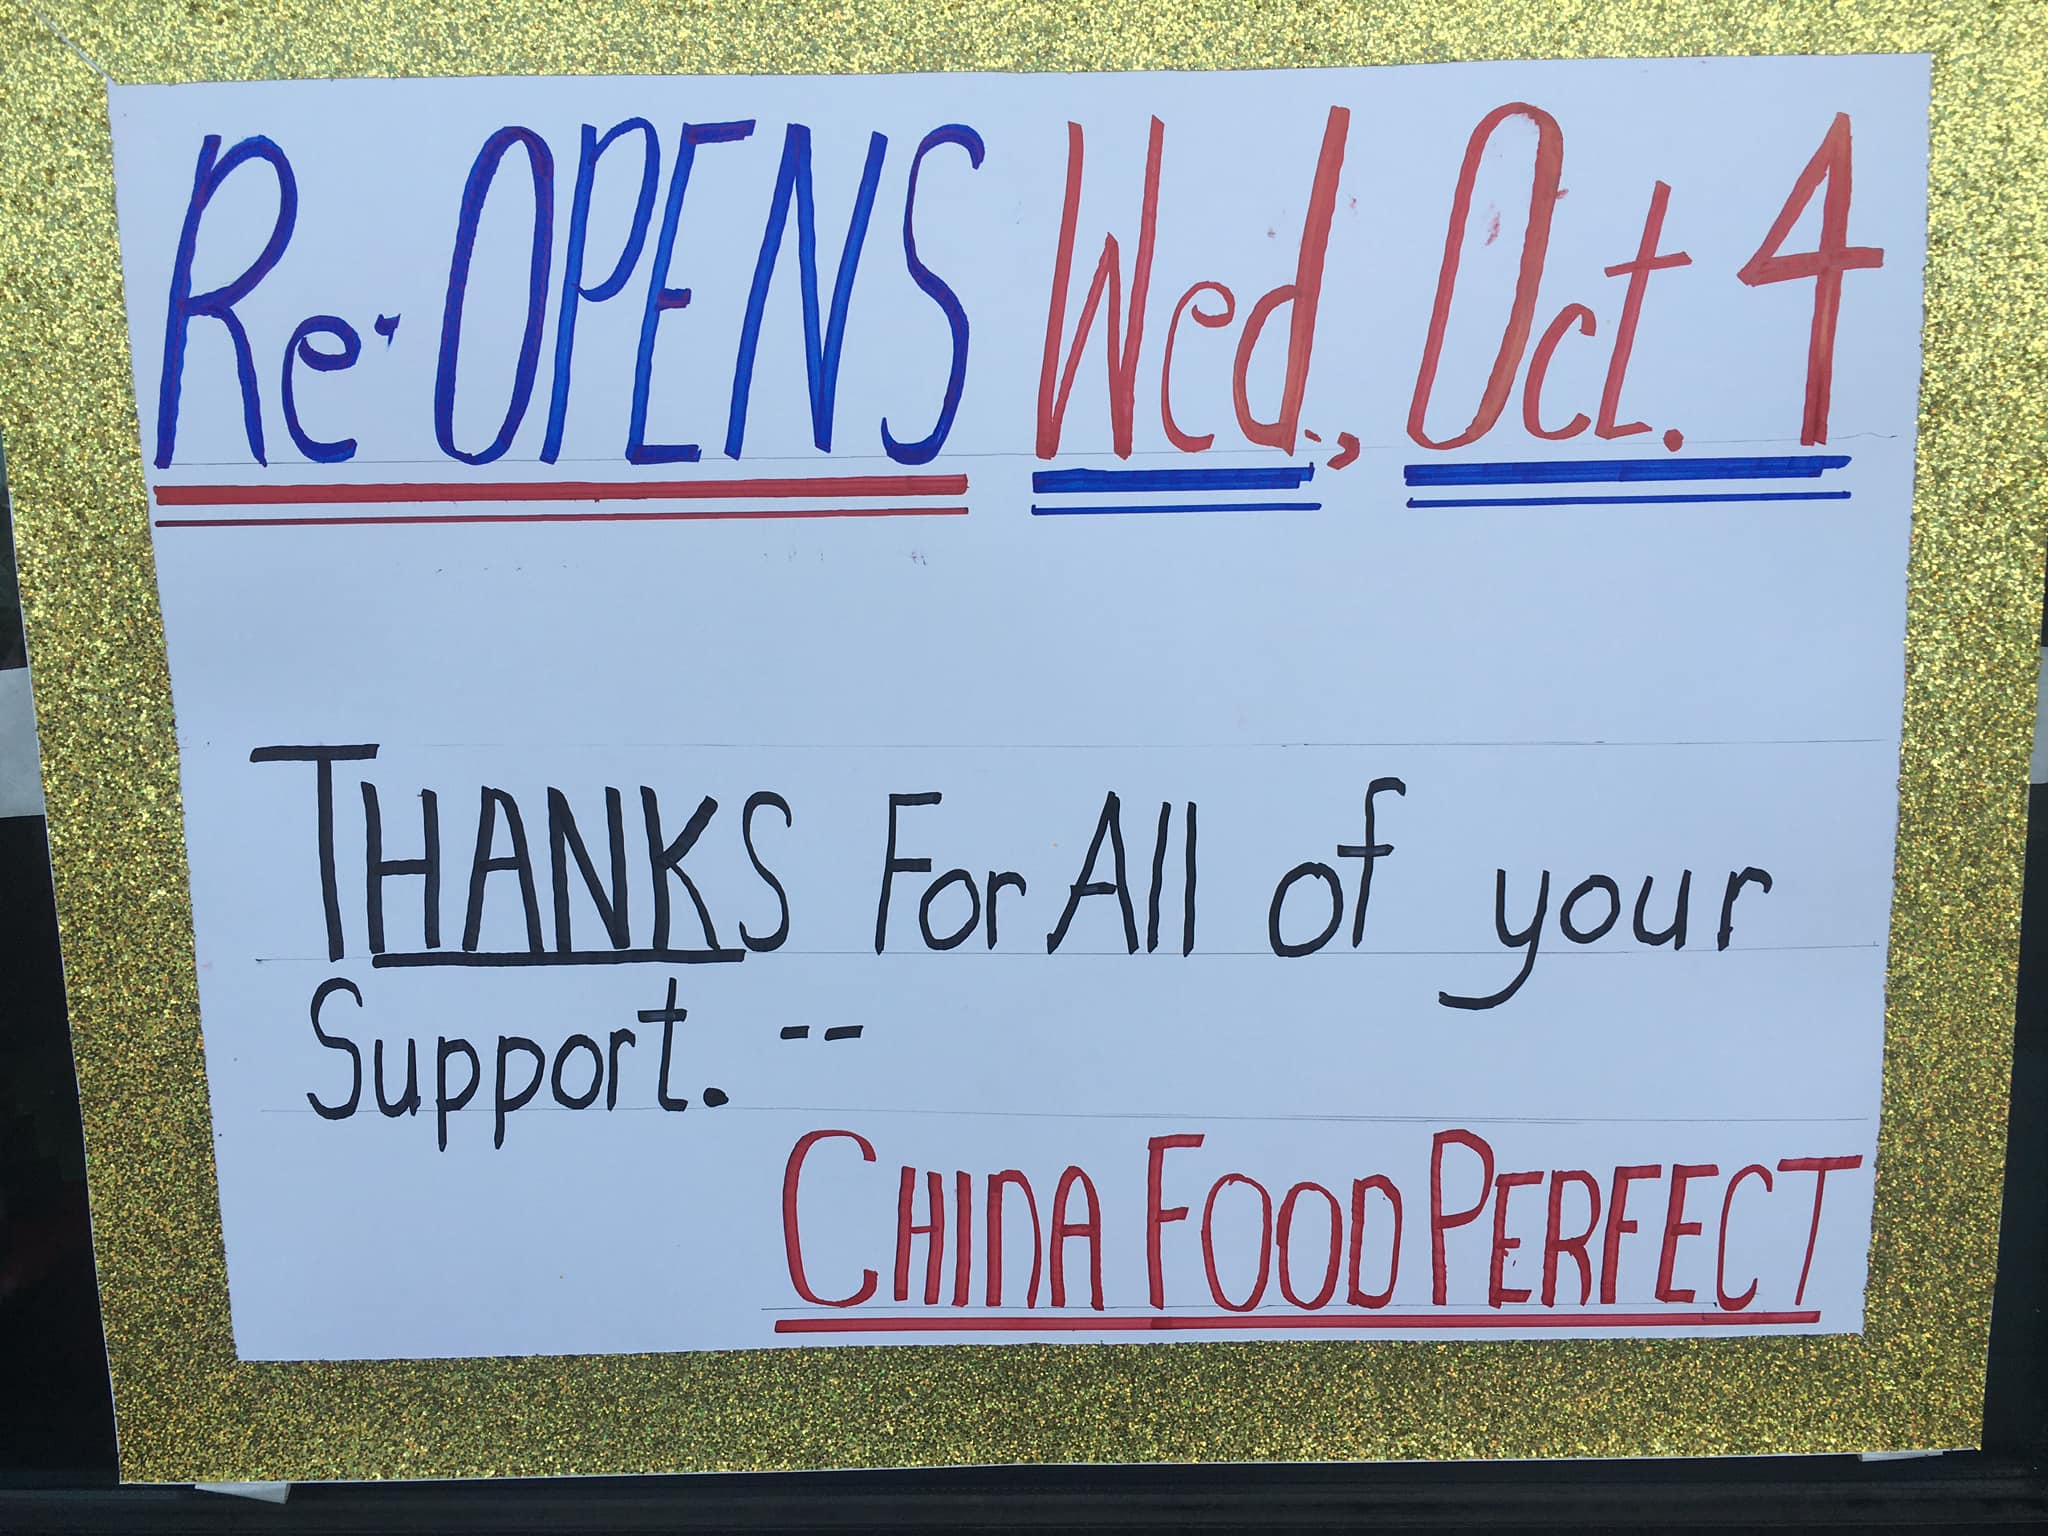 Re-OPENS Wed., Oct. 4
THANKS For All of your
Support. --
CHINA FOOD PERFECT